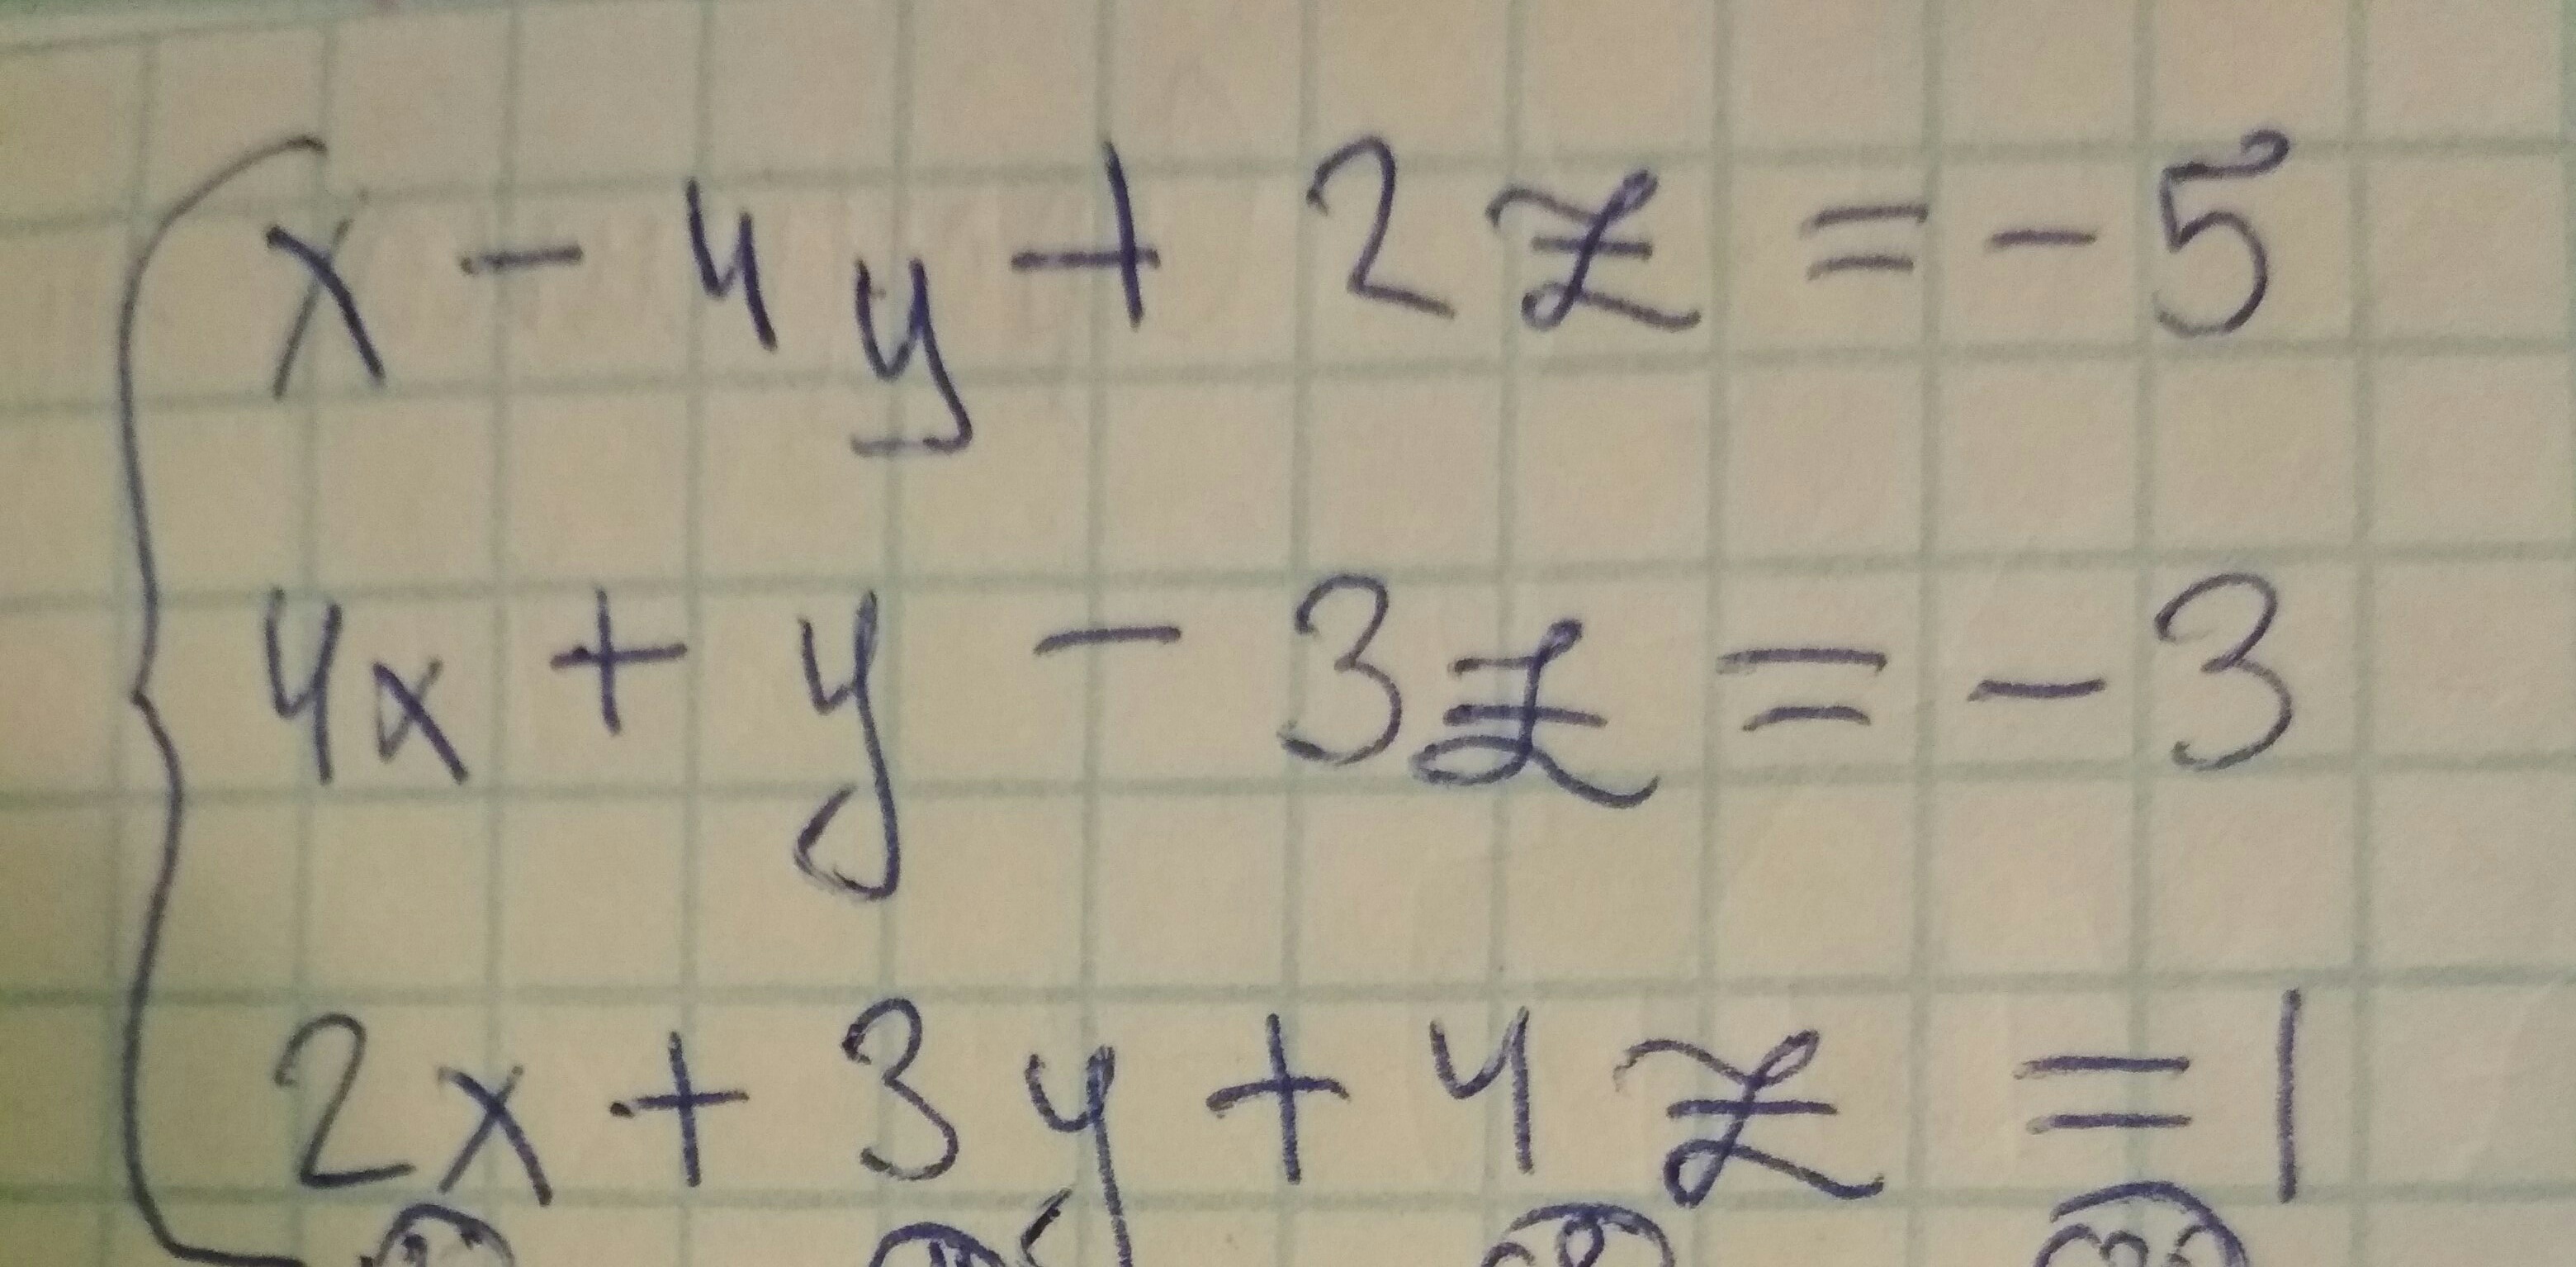 x - 4y + 2z = -5
4x + y - 3z = -3
2x + 3y + 4z = 1